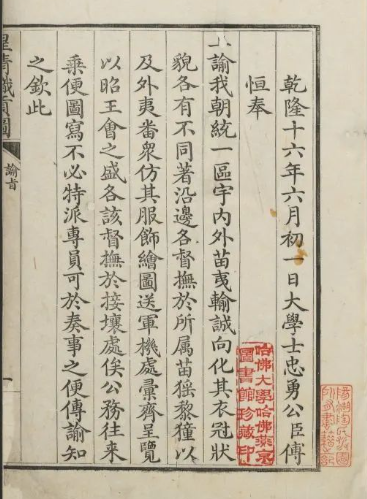 乾隆十六年六月初一日大學士忠勇公臣傅
恒奉
上諭我朝統一區宇內外苗夷輸誠向化其衣冠狀
貌各有不同著沿邊各督撫於所属苗猺黎獞以
及外夷番衆仿其服飾繪圖送軍機處彙齊呈覽
以昭王會之盛各該督撫於接壤處俟公務往來
乘便圖寫不必特派專員可於奏事之便傳諭知
之欽此
皇清職貢圖
諭旨
一
哈佛大學哈佛燕京
圖書館珍藏印